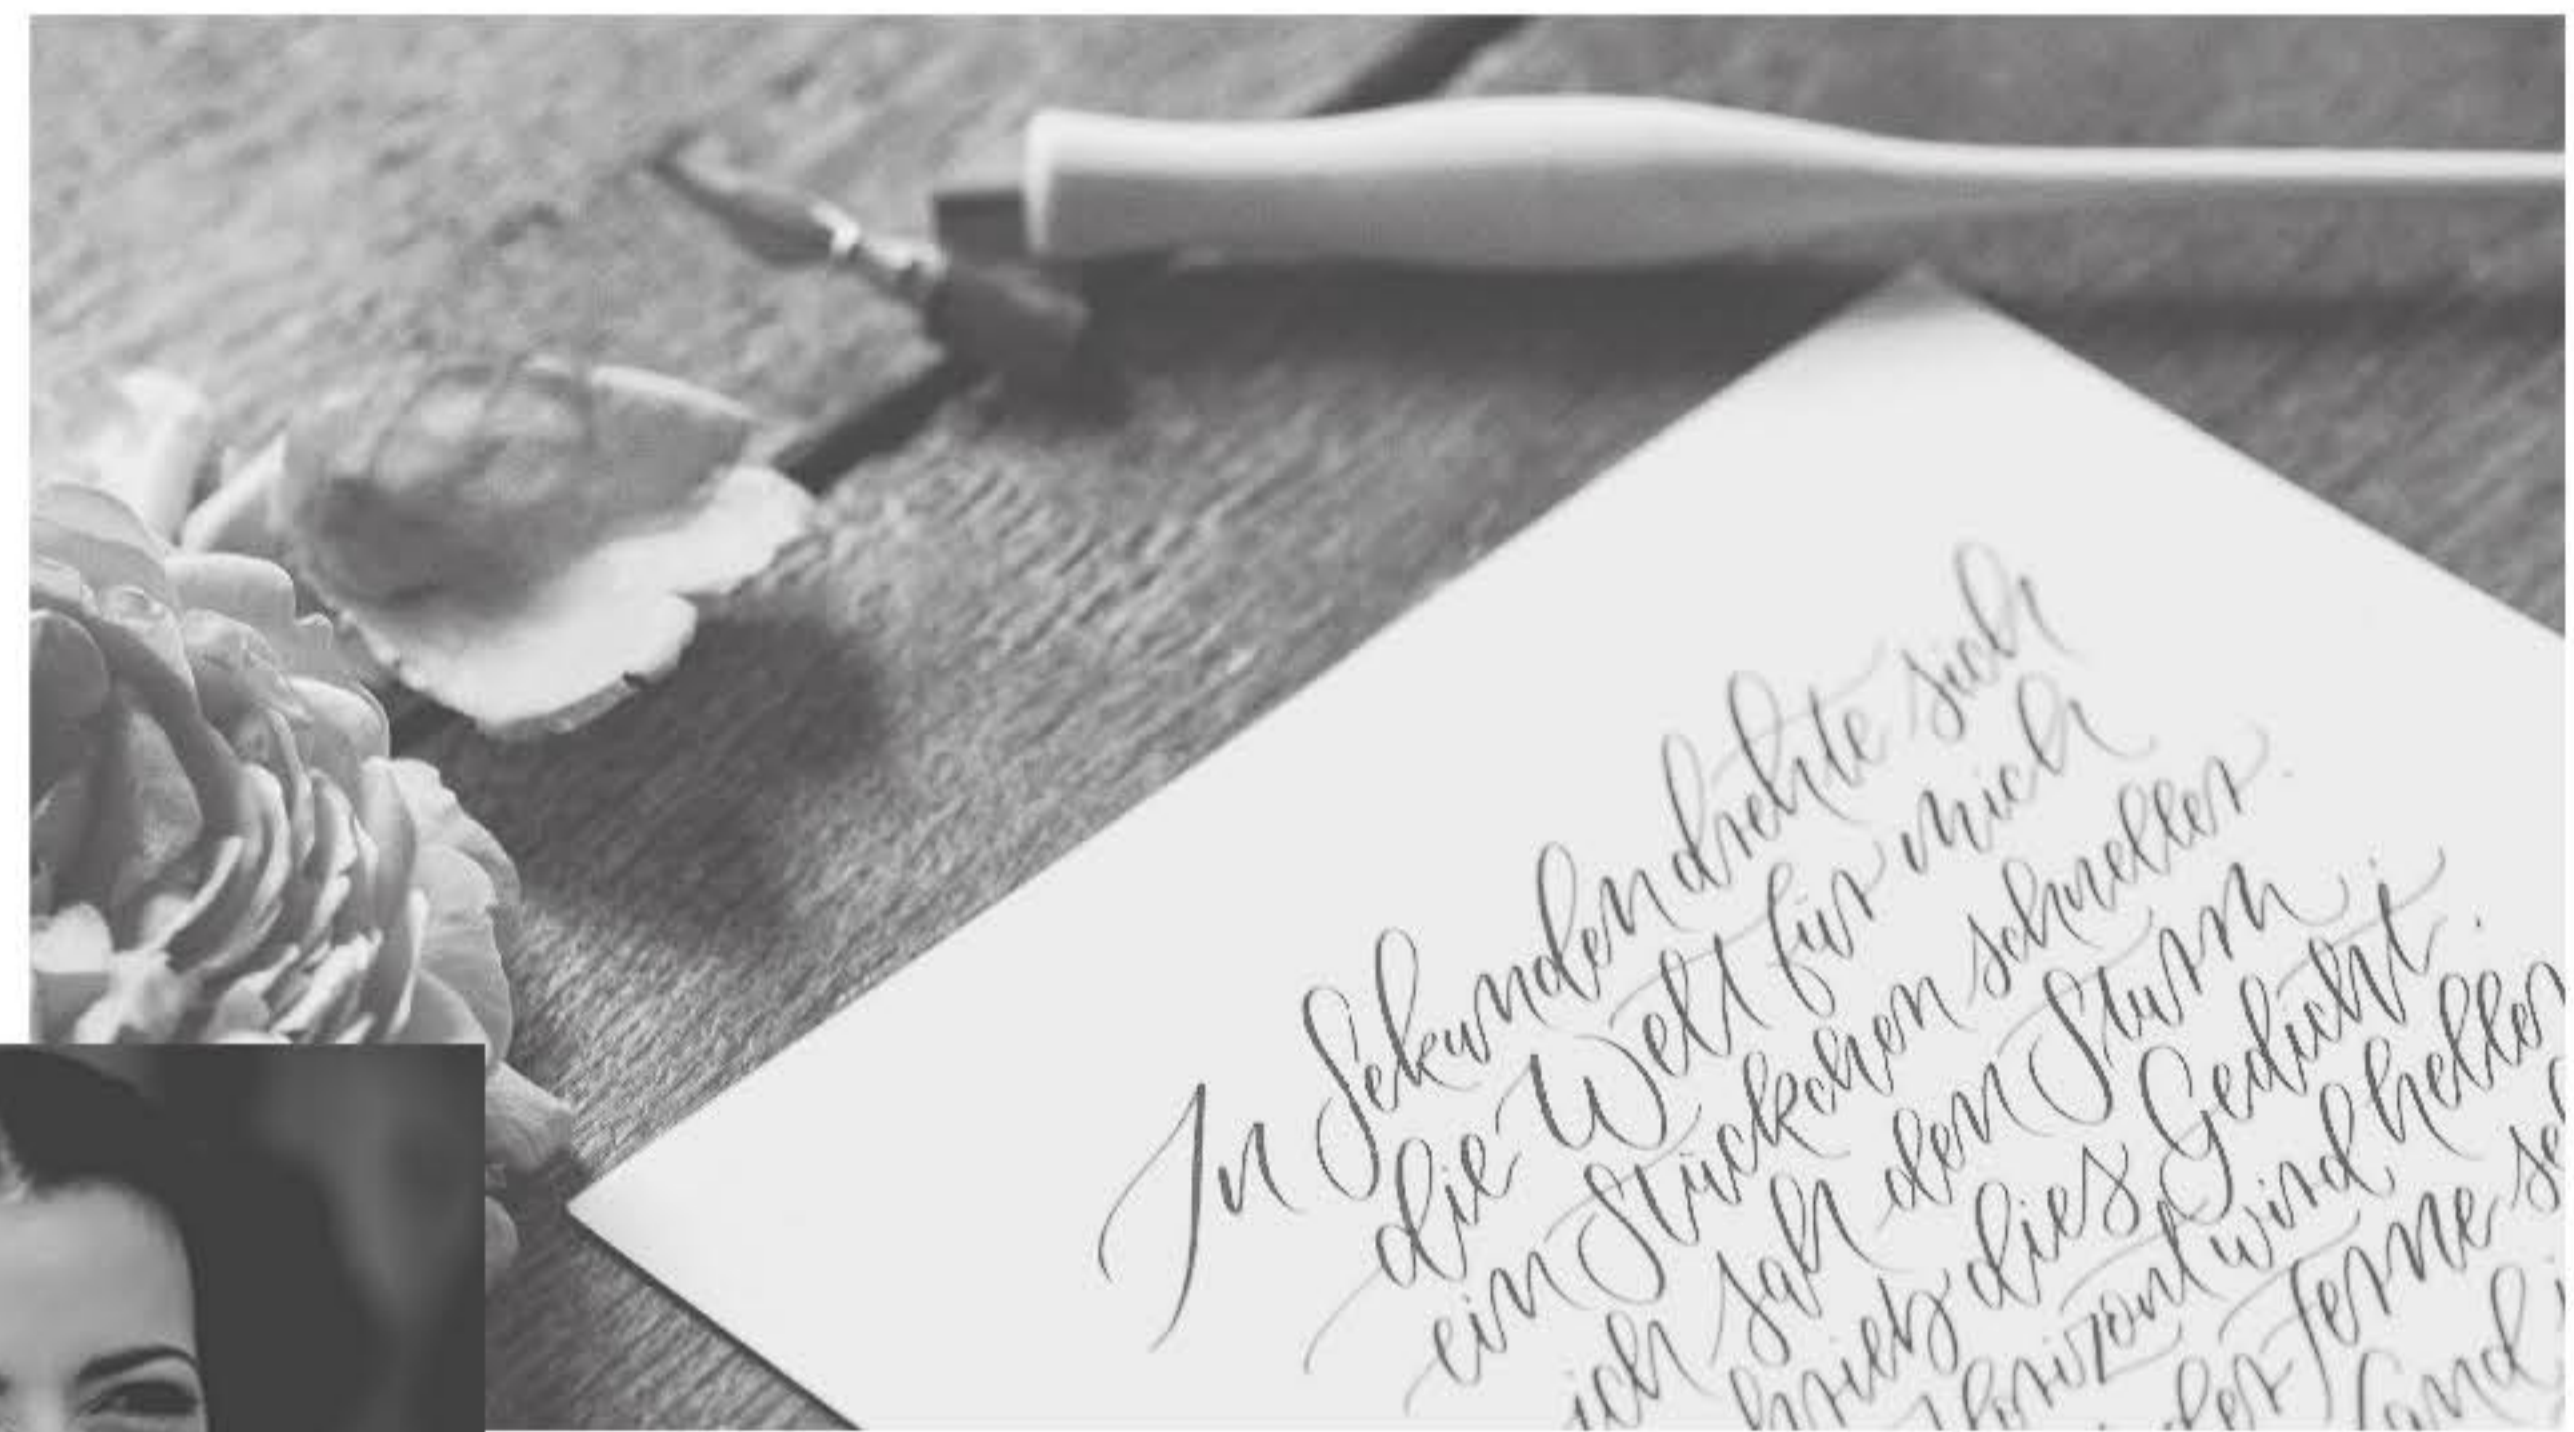 In Sekunden drehte sich
die Welt für mich
ein Stückchen schneller.
ich sah den Sturm
dies Gedicht.
wird heller
Ferne